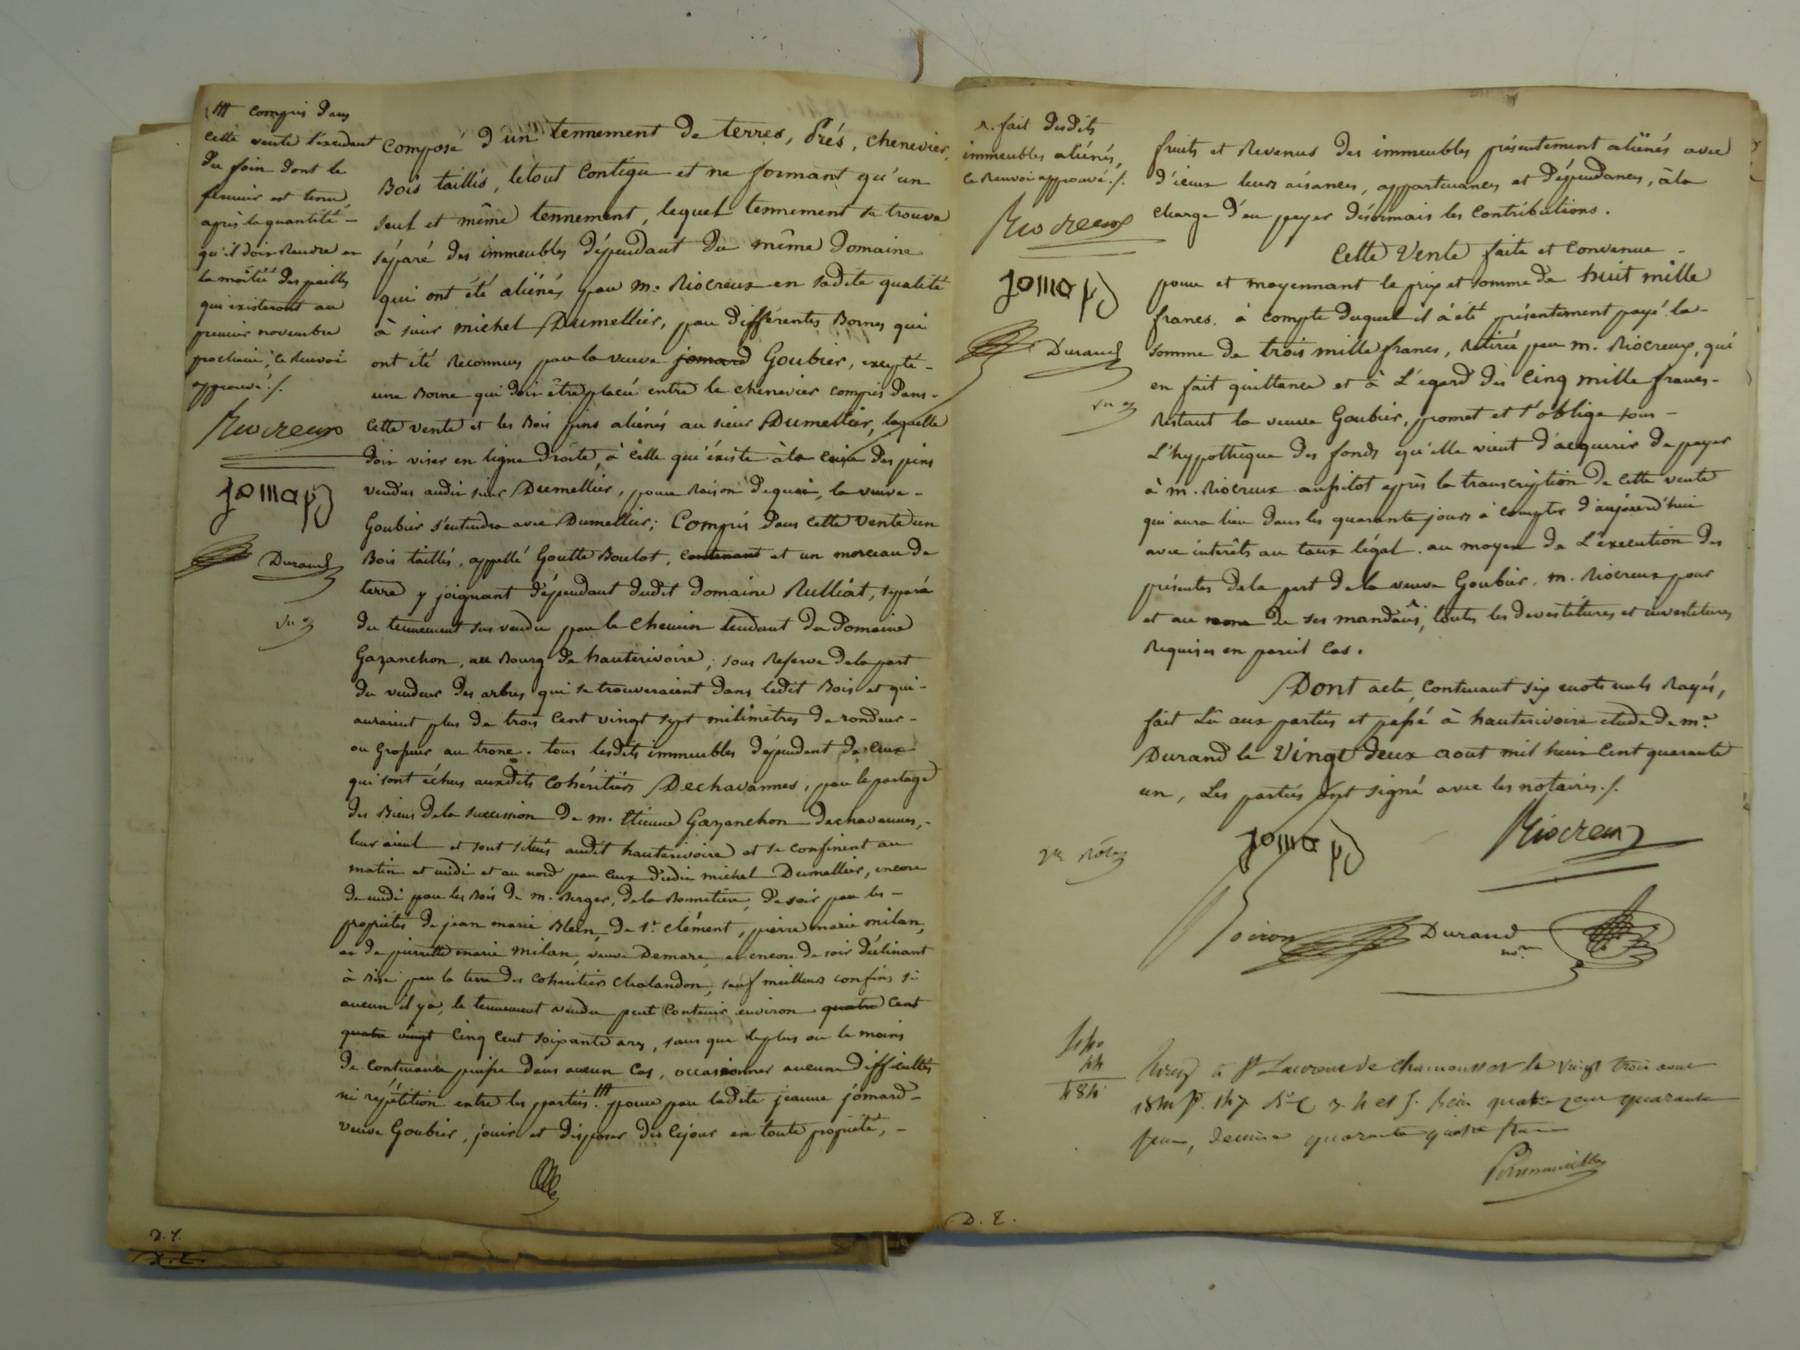 ttt compris dans
cette vente l'excedant
du foin dont le
fermier est tenu,
après la quantité
qu'il doit rendre en
la moitié des pailles
qui existeront au
premier novembre
prochain, ce Renvoi
approuvé ./.
Riocreux
jomard
Durand
composé d'un tennement de terres, Prés, chenevier,
Bois taillis, le tout contigu et ne formant qu'un
seul et même tennement, lequel tennement se trouve
séparé des immeubles dépendant du même Domaine
qui ont été aliénés par m. Riocreux en sadite qualité
à sieur michel Dumellier, par différentes Bornes qui
ont été Reconnues par la veuve jomard Goubier, excepté
une Borne qui doit être placée entre le chenevier compris dans
cette vente et les Bois pins aliénés au sieur Dumellier, laquelle
doit viser en ligne droite, à celle qui existe à la des pins
vendus audit sieur Dumellier, pour Raison de quoi, la veuve
Goubier s'entendra avec Dumellier; Compris dans cette vente un
Bois taillis, appellé Goutte Boulot, contenant et un morceau de
terre y joignant dépendant dudit domaine Rulliat, séparé
du tennement sus vendu par le chemin tendant du Domaine
Gazanchon, au Bourg de hauterivoire; sous Reserve de la part
du vendeur des arbres qui se trouveraient dans ledit Bois et qui
auraient plus de trois cent vingt sept milimètres de rondeur
ou grosseur au tronc. tous lesdits immeubles dépendent de ceux
qui sont échus auxdits cohéritiers Dechavannes, par le partage
des Biens de la succession de m. Etienne Gazanchon dechavannes,
leur aieul et sont situés audit hauterivoire et se confinent au
matin et midi et au nord par ceux dudit michel Dumellier, encore
de midi par les Bois de m. Berger, de la Bonnetière, de soir par les
propriétés de jean marie Blein, de St. clément, pierre marie milan,
et de pierrette marie milan, veuve Demare, et encore de soir déclinant
à Bise par la terre des cohéritiers chalandon, sauf meilleurs confins si
aucun il y a, le tennement vendu peut contenir environ quatre cent
quatre vingt cinq cent soixante ares, sans que le plus ou le moins
de contenance puisse dans aucun cas, occasionner aucune difficultés
ni répétition entre les parties. ttt pour par ladite jeanne jomard
veuve Goubier, jouir et disposer dès ce jour en toute propriété,
D. Z.
D. Z.
r. fait desdits
immeubles aliénés,
ce Renvoi approuvé ./.
Riocreux
jomard
Durand
fruits et Revenus des immeubles présentement aliénés avec
d'iceux leurs aisances, appartenances et dépendances, à la
charge d'en payer désormais les contributions.
Cette Vente faite et convenue
pour et moyennant le prix et somme de huit mille
francs. à compte duquel il a été présentement payé la
somme de trois mille francs, retirée par m. Riocreux, qui
en fait quittance et à L'égard des cinq mille francs
Restant la veuve Goubier, promet et s'oblige sous
L'hypothèque des fonds qu'elle vient d'acquérir de payer
à m. Riocreux aussitot après la transcription de cette vente
qui aura lieu dans les quarante jours à compter d'aujourd'hui
avec intérêts au taux légal. au moyen de L'execution des
présentes de la part de la veuve Goubier, m. Riocreux pour
et au nom de ses mandants, toutes les devestitures et investitures
Requises en pareil cas.
Dont acte, contenant six mots nuls Rayés,
fait Lû aux parties et passé à hauterivoire étude de me.
Durand le vingt deux aout mil huit cent quarante
un, Les parties ont signé avec les notaires ./.
jomard
Riocreux
Boiron
Durand
à St Laurent de chamousset le vingt trois aout
1841 fo. 147
quarante quatre
D. Z.